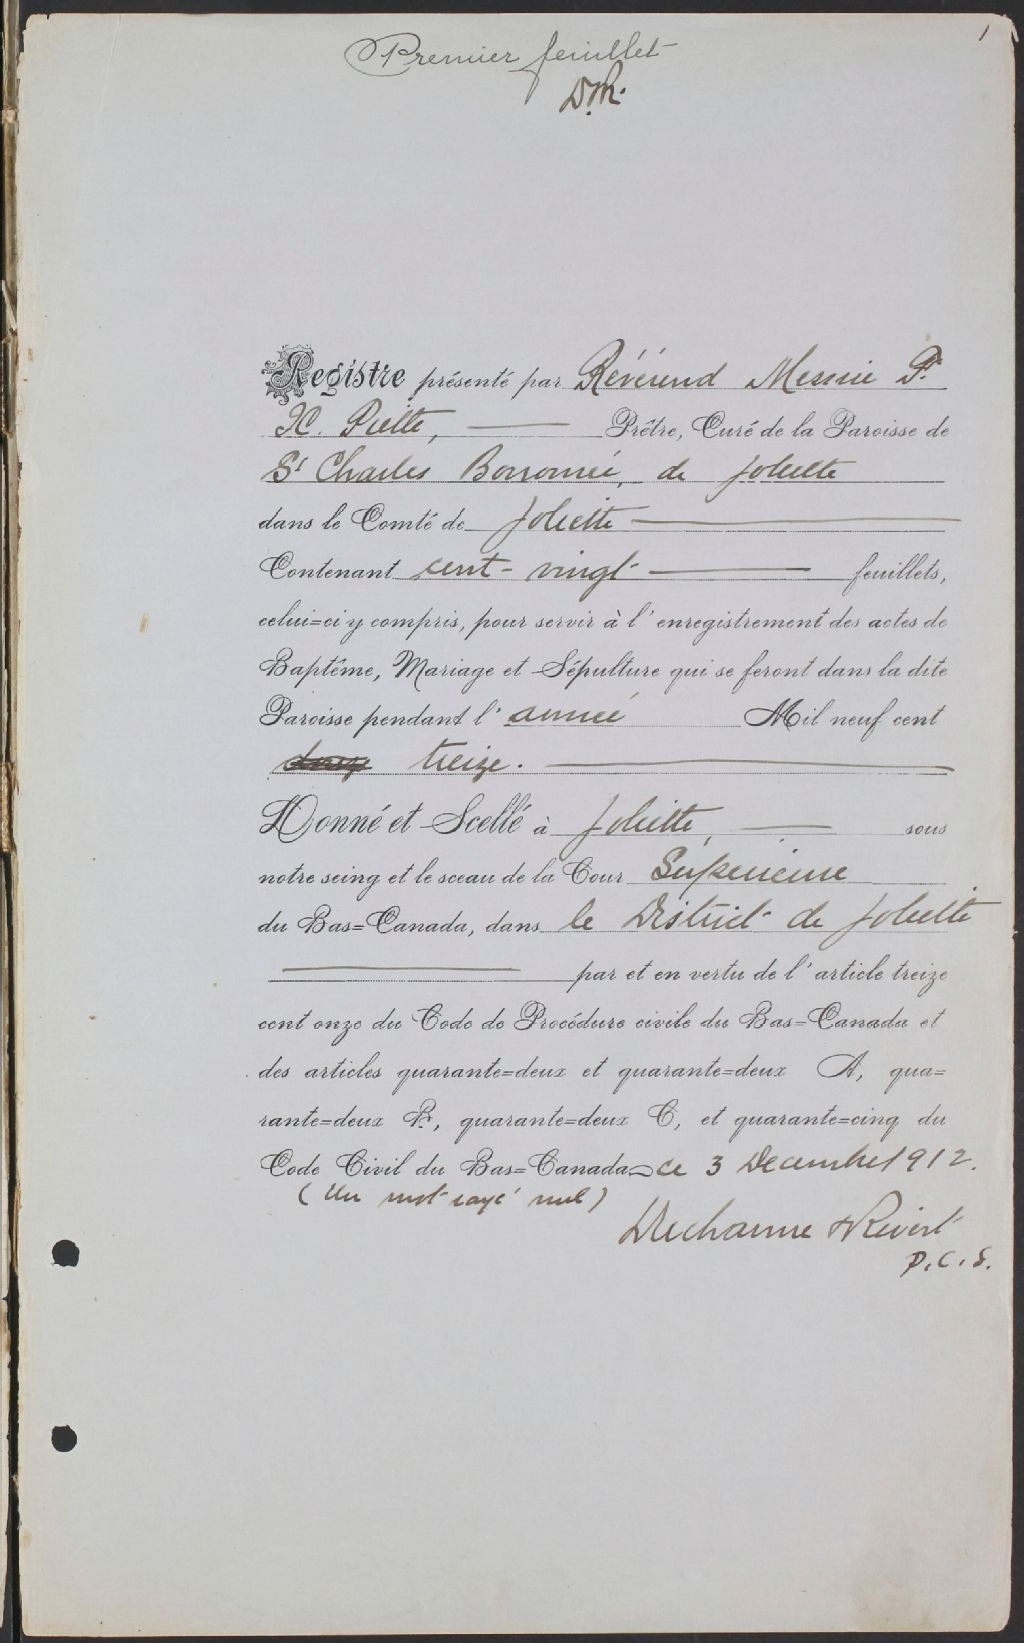 1
Premier feuillet
D.&R.
Registre présenté par Révérend Messire F.
X. Piette, Prêtre, Curé de la Paroisse de
St Charles Borromée, de Joliette
dans le Comté de Joliette
Contenant cent-vingt feuillets,
celui=ci y compris, pour servir à l'enregistrement des actes de
Baptême, Mariage et Sépulture qui se feront dans la dite
Paroisse pendant l'année Mil neuf cent
douze treize.
Donné et Scellé à Joliette, sous
notre seing et le sceau de la Cour Supérieure
du Bas=Canada, dans le District de Joliette
par et en vertu de l'article treize
cent onze du Code de Procédure civile du Bas=Canada et
des articles quarante=deux et quarante=deux A, qua=
rante=deux B, quarante=deux C, et quarante=cinq du
Code Civil du Bas=Canada ce 3 Decembre 1912.
(Un mot rayé nul)
Ducharme & Rivest
P.C.S.